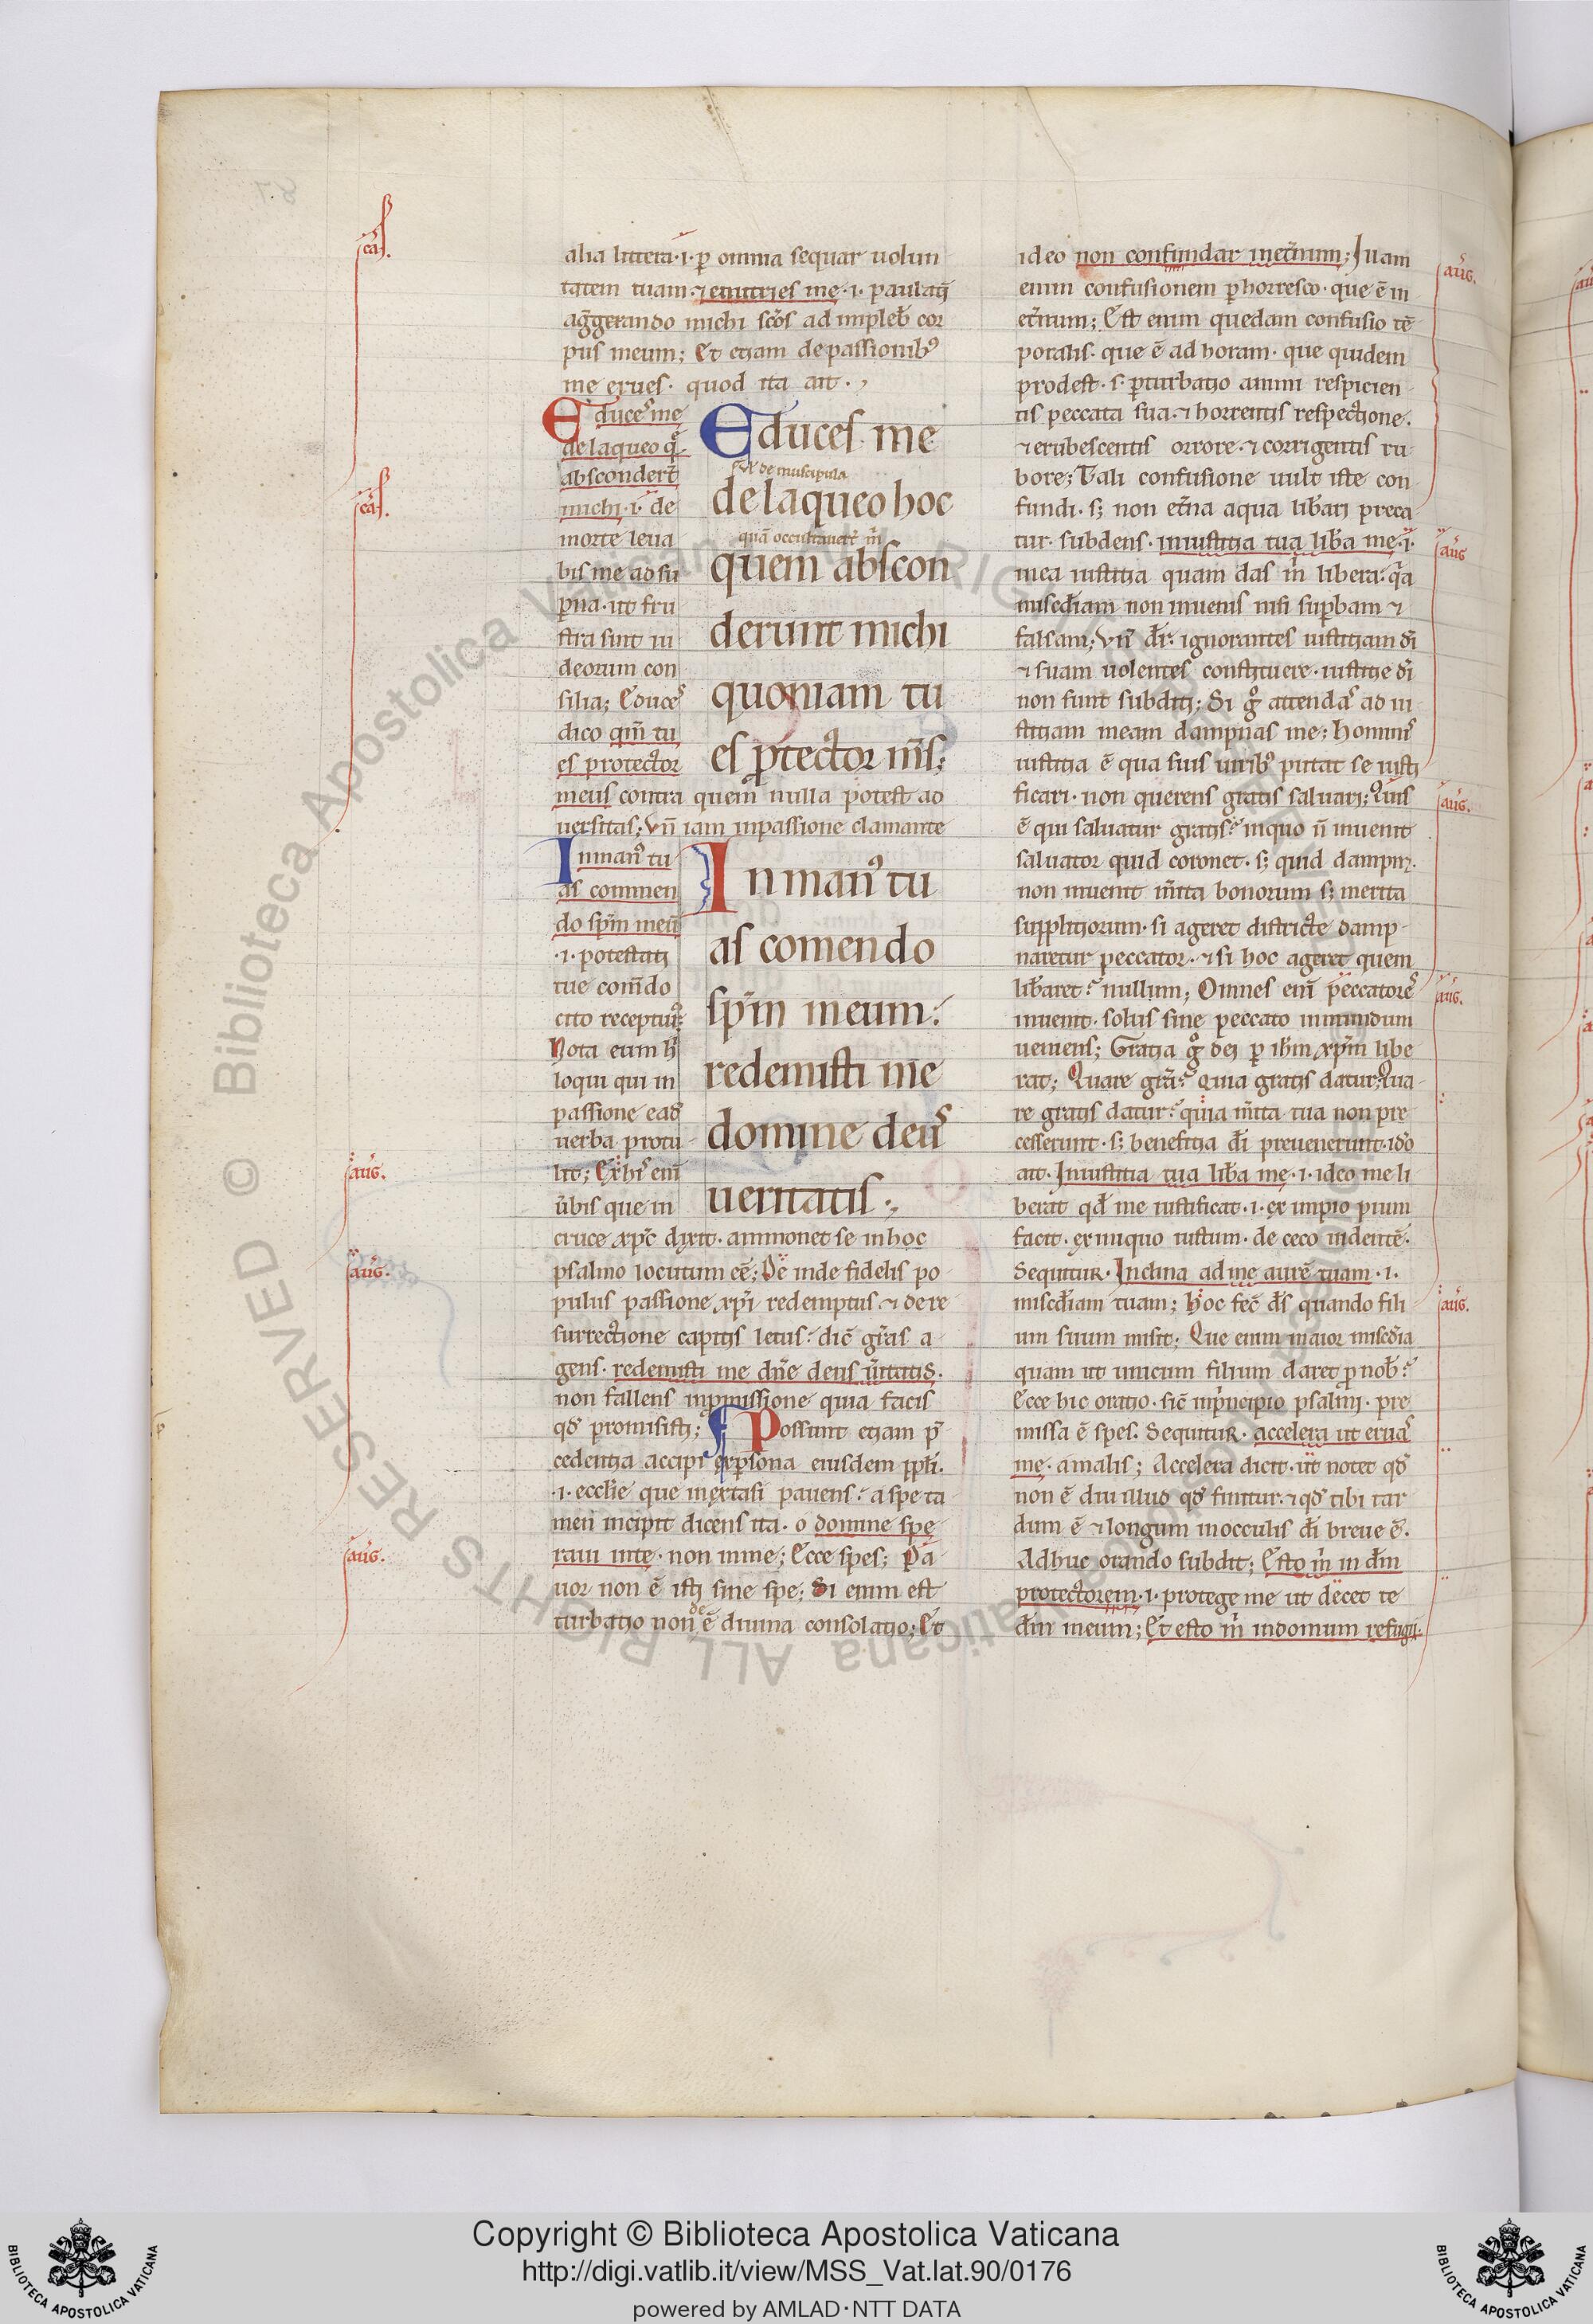 alia littera·i· ꝑ omnia sequar uolun
tatem tuam·⁊ enutries me·i· paulatĩ
ag̃gerando michi sc̃os ad impleb̃ cor
pus meum; Et etiam de passionibꝰ
me erues· quod ita ait·,
Educes me
de laqueo q̃
absconderũt
michi·i· de
morte leua
bis me ad su
ꝑna·ut fru
stra sint iu
deorum con
silia; Educes
dico qm̃ tu
es protector
meus contra quem nulla potest ad
uersitas; Vñ iam in passione clamante
Educes me
de muscipula
de laqueo hoc
quã occultauert̃ m̃
quem abscon
derunt michi
quoniam tu
es ꝓtector m̃s;
In manꝰ tu
as commen
do sp̃m meũ
·i· potestati
tue com̃do
cito recepturꝰ;
Nota eum h̃
loqui qui in
passione ead̃
uerba protu
lit; Ex his eni᷃
ũbis que in
cruce xp̃c dixit· ammonet se in hoc
psalmo locutum eẽ; De inde fidelis po
pulus passione xp̃i redemptus ⁊ de re
surrectione capitis letus· dic̃ gr̃as a
gens· redemisti me dñe deus ũitatis·
non fallens in ꝓmissione quia facis
qd̃ promisisti; Possunt etiam p̃
cedentia accipi ex ꝑsona eiusdem pp̃li·
·i· ecclie que in extasi pauens· a spe ta
men incipit dicens ita· o domine spe
raui in te· non in me; Ecce spes; Pa
uor non ẽ isti sine spe; Si enim est
turbatio non ẽ diuina consolatio; Et
In manꝰ tu
as comendo
sp̃m meum·
redemisti me
domine deus
ueritatis·,
ideo non confundar in et̃num; Iuam
enim confusionem ꝑhorresco· que ẽ in
et̃num; Est enim quedam confusio tẽ
poralis· que ẽ ad horam· que quidem
prodest· s· ꝑturbatio animi respicien
tis peccata sua·⁊ horrentis respectione·
⁊ erubescentis orrore·⁊ corrigentis ru
bore; Tali confusione uult iste con
fundi· sꝫ non et̃na a qua lib̃ari preca
tur· subdens· in iustitia tua lib̃a me·i·
mea iustitia quam das m̃ libera· q̃a
misc̃diam non inuenis nisi suꝑbam ⁊
falsam; Vñ dr̃· ignorantes iustitiam di᷃
⁊ suam uolentes constituere· iustitie di᷃
non sunt subditi; Si g̊ attendas ad iu
stitiam meam dampnas me; hominis
iustitia ẽ qua suis uiribꝰ putat se iusti
ficari· non querens gratis saluari; Quis
ẽ qui saluatur gratis· in quo ñ inuenit
saluator quid coronet· sꝫ quid dampnet
non inuenit m̃ita bonorum sꝫ merita
suppliciorum· si ageret districte damp
naretur peccator·⁊ si hoc ageret quem
lib̃aret· nullum; Omnes eni᷃ peccatores
inuenit· solus sine peccato in mundum
ueniens; Gratia g̊ dei ꝑ ihm̃ xp̃m libe
rat; Quare gr̃a· quia gratis datur· Qua
re gratis datur· quia m̃ita tua non pre
cesserunt· sꝫ beneficia di᷃ preuenerunt· id̃o
ait· In iustitia tua lib̃a me·i· ideo me li
berat qd̃ me iustificat·i· ex impio pium
facit· ex iniquo iustum· de ceco uidentẽ·
Sequitur· Inclina ad me aurẽ tuam·i·
misc̃diam tuam; Hoc fec̃ ds̃ quando fili
um suum misit; Que enim maior misc̃dia
quam ut unicum filium daret ꝓ nob̃·
Ecce hic oratio· sic̃ in principio psalmi· pre
missa ẽ spes· Sequitur· accelera ut eruas
me· a malis; Accelera dicit· ut notet qd̃
non ẽ diu illud qd̃ finitur·⁊ qd̃ tibi tar
dum ẽ ⁊ longum in occulis di᷃ breue ẽ·
Adhuc orando subdit; Esto m̃ in dm̃
protectorem·i· protege me ut decet te
dm̃ meum; Et esto m̃ in domum refugii·
cas̃·
cas̃·
aug̃·
aug̃·
aug̃·
aug̃·
aug̃
aug̃·
aug̃·
aug̃·
Copyright © Biblioteca Apostolica Vaticana
http://digi.vatlib.it/view/MSS_Vat.lat.90/0176
powered by AMLAD·NTT DATA
BIBLIOTECA APOSTOLICA VATICANA
BIBLIOTECA APOSTOLICA VATICANA
© Biblioteca Apostolica Vaticana ALL RIGHTS RESERVED